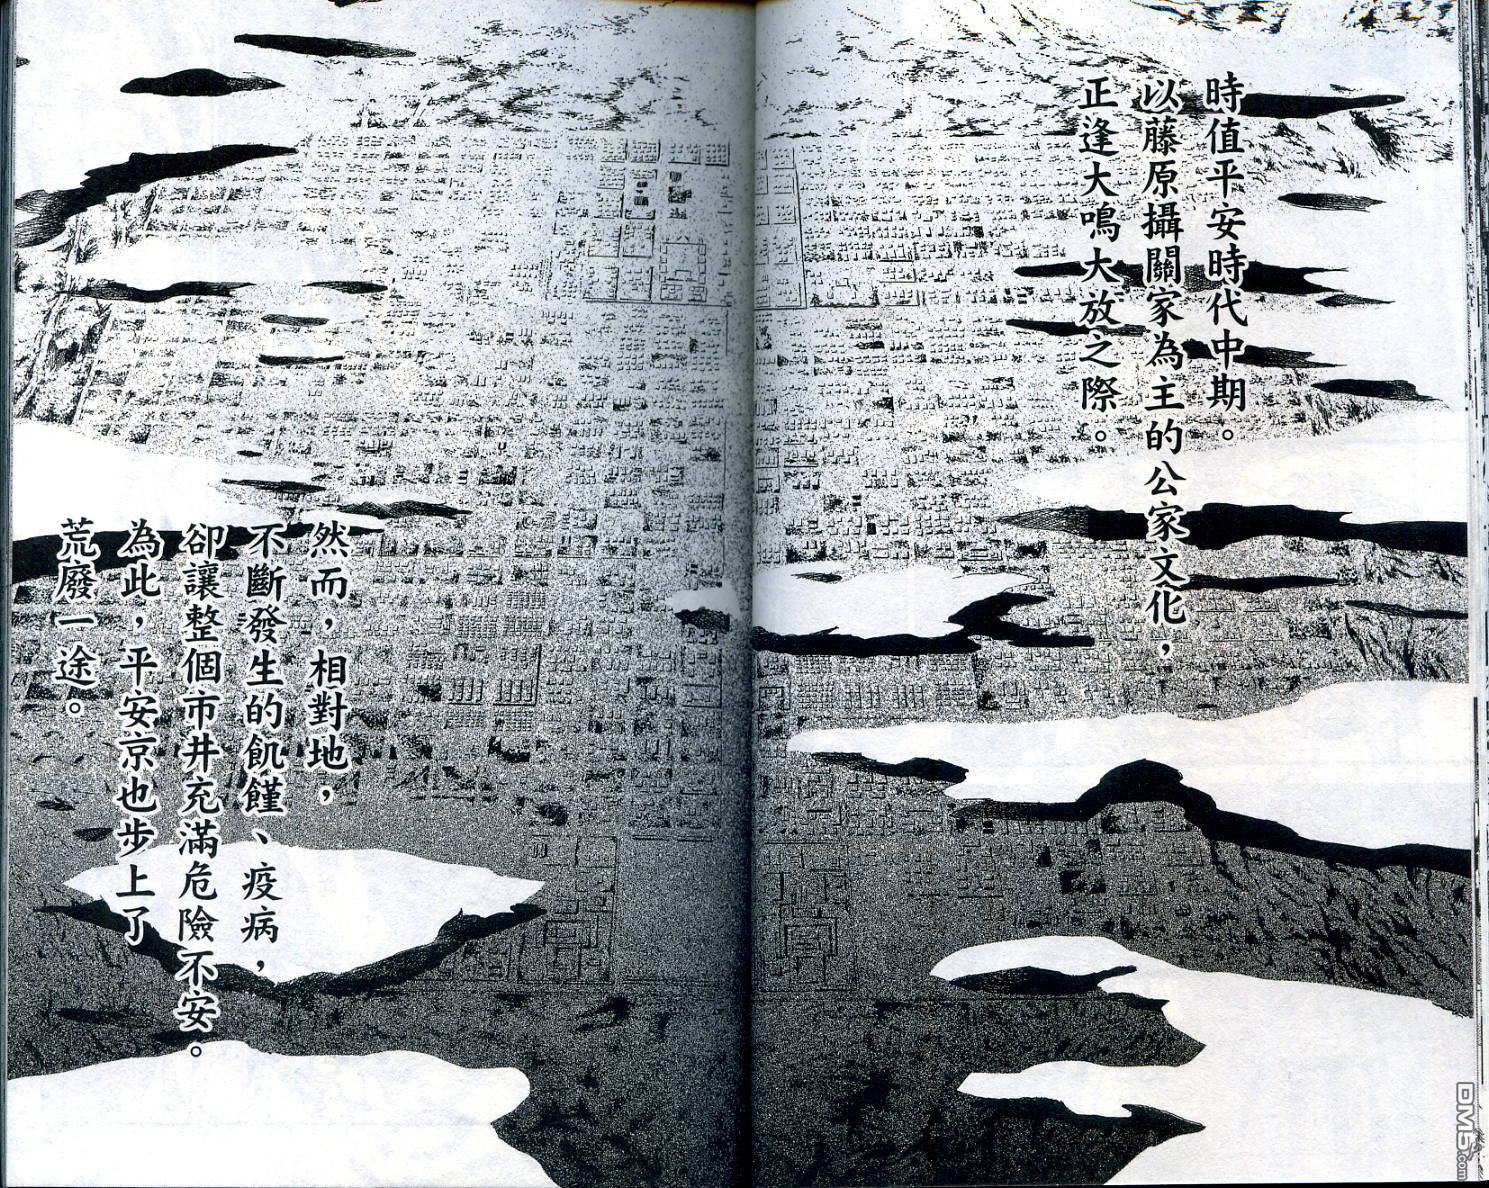 時值平安時代中期。
以藤原攝關家為主的公家文化，
正逢大鳴大放之際。
然而，相對地，
不斷發生的飢饉、疫病，
卻讓整個市井充滿危險不安。
為此，平安京也步上了
荒廢一途。
DM5.com